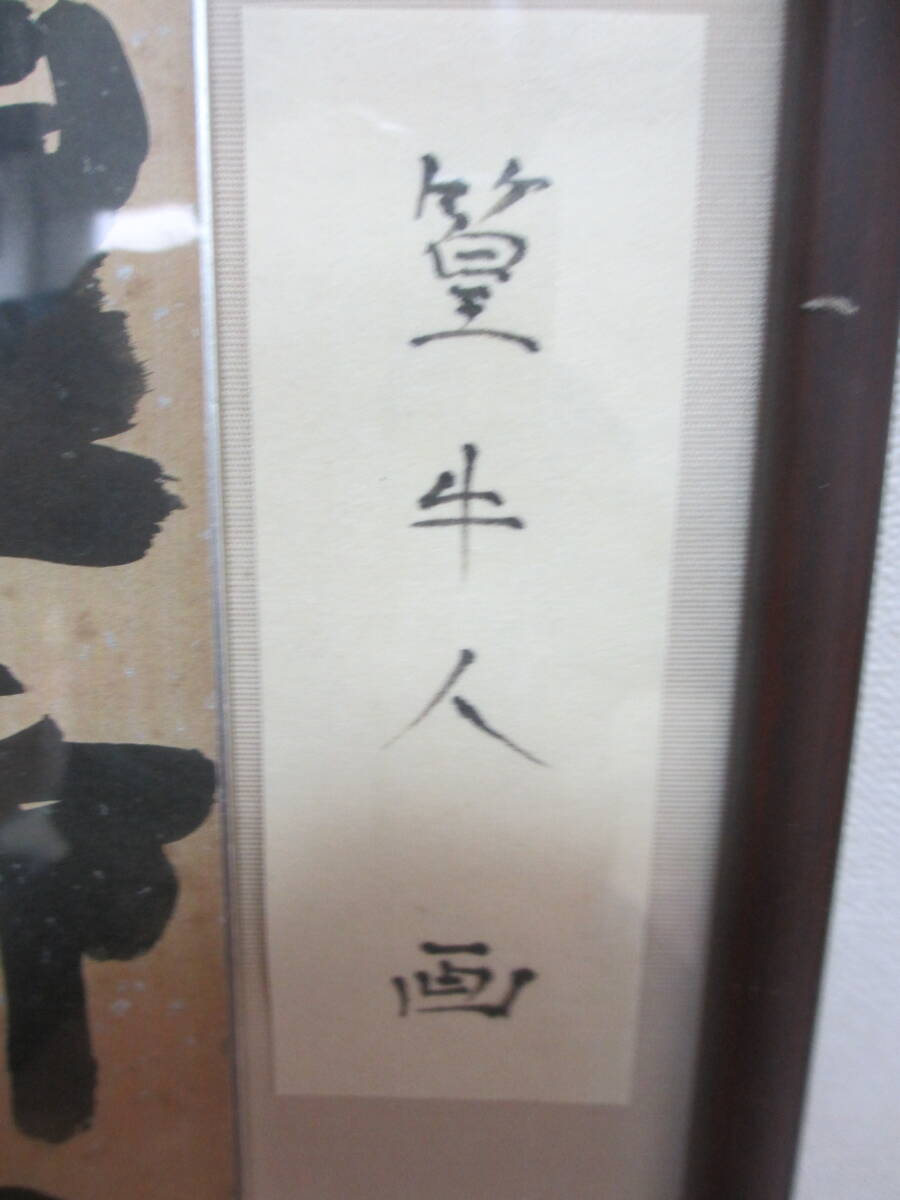 篁牛人画